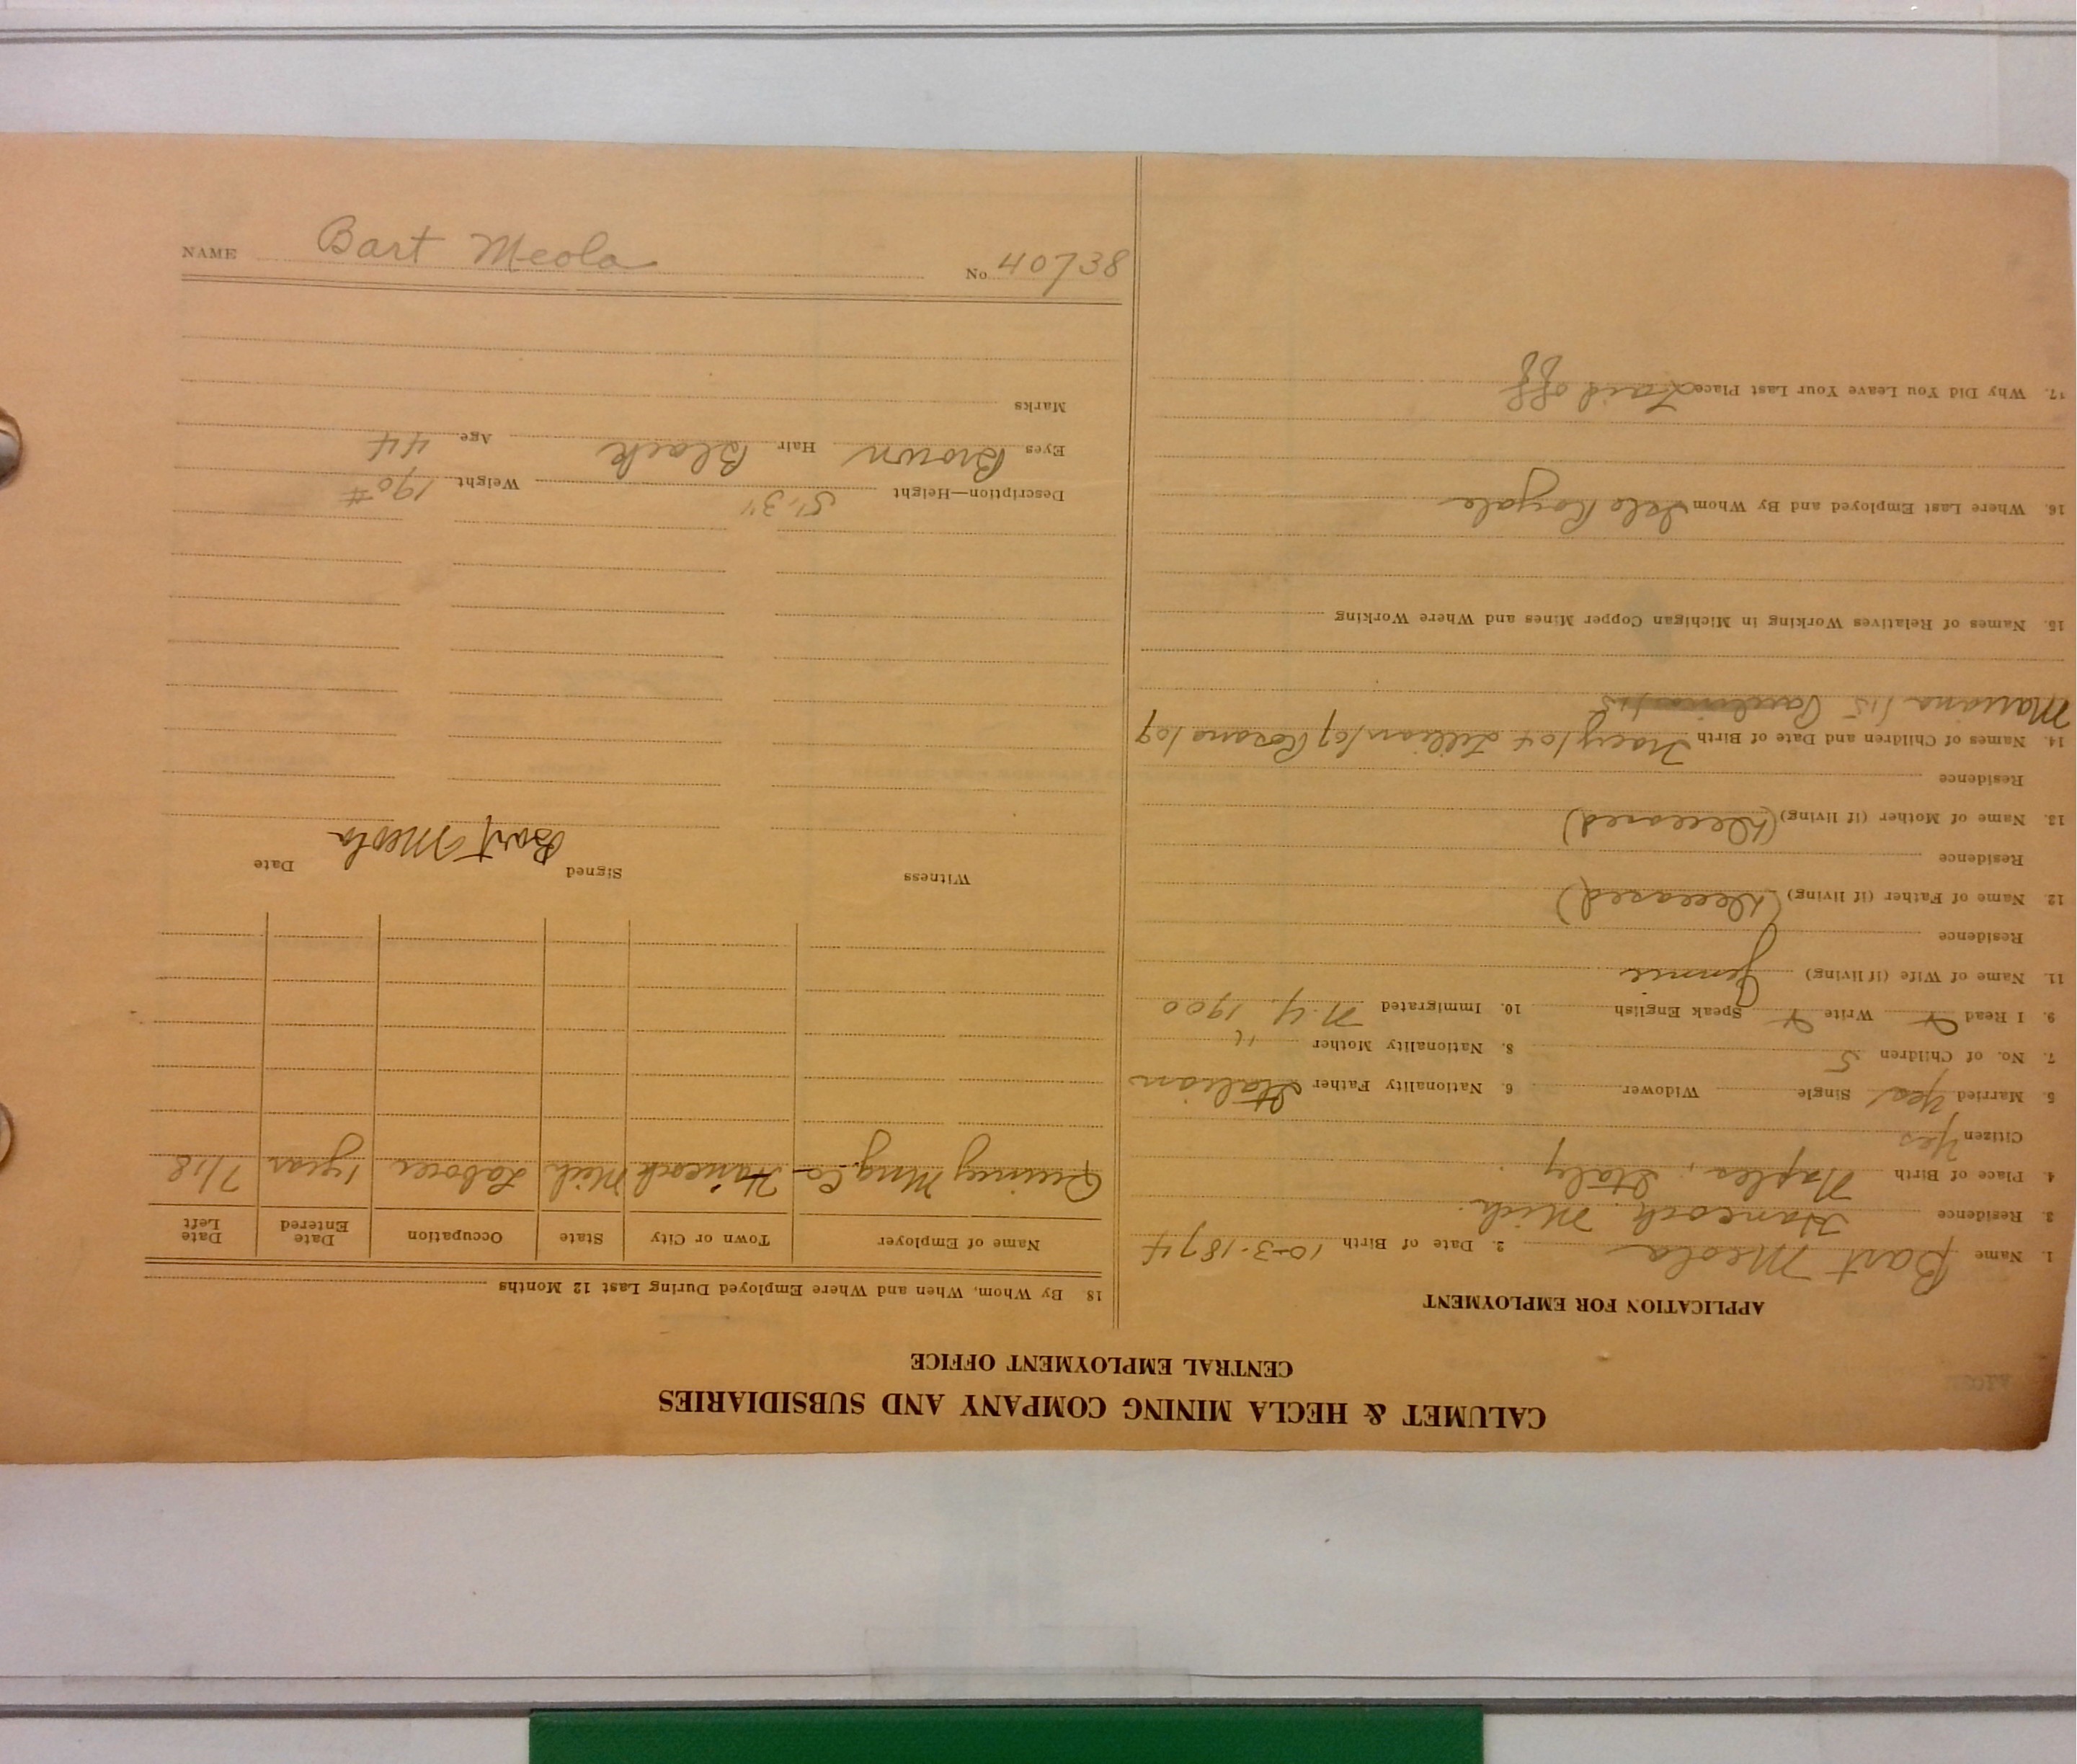 CALUMET & HECLA MINING COMPANY AND SUBSIDIARIES
CENTRAL EMPLOYMENT OFFICE
APPLICATION FOR EMPLOYMENT
1. Name Bart Meola 2. Date of Birth 10-3-1874
3. Residence Hancock Mich.
4. Place of Birth Naples, Italy
Citizen Yes
5. Married Yes Single Widower 6. Nationality Father Italian
7. No. of Children 5 8. Nationality Mother "
9. I Read Write Speak English 10. Immigrated N.Y. 1900
11. Name of Wife (if living) Jennie
Residence
12. Name of Father (if living) (Deceased)
Residence
13. Name of Mother (if living) (Deceased)
Residence
14. Names of Children and Date of Birth /04 Lillian/07 Rosana/09
Mariana /15
15. Names of Relatives Working in Michigan Copper Mines and Where Working
16. Where Last Employed and By Whom Isle Royale
17. Why Did You Leave Your Last Place Laid off
18. By Whom, When and Where Employed During Last 12 Months
Name of Employer Town or City State Occupation Date Entered Date Left
Quincy Mng. Co. Hancock Mich Laborer 1 year 7/18
Witness Signed Bart Meola Date
Description—Height 5'-3" Weight 190#
Eyes Brown Hair Black Age 44
Marks
NAME Bart Meola No. 40738